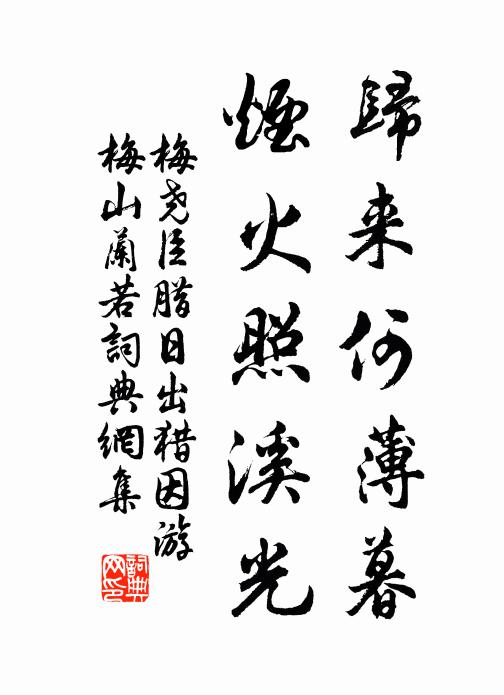 歸来何薄暮
煙火照溪光
梅尧臣腊日出猎因游
梅山蘭若詞典網集
詞典
网印